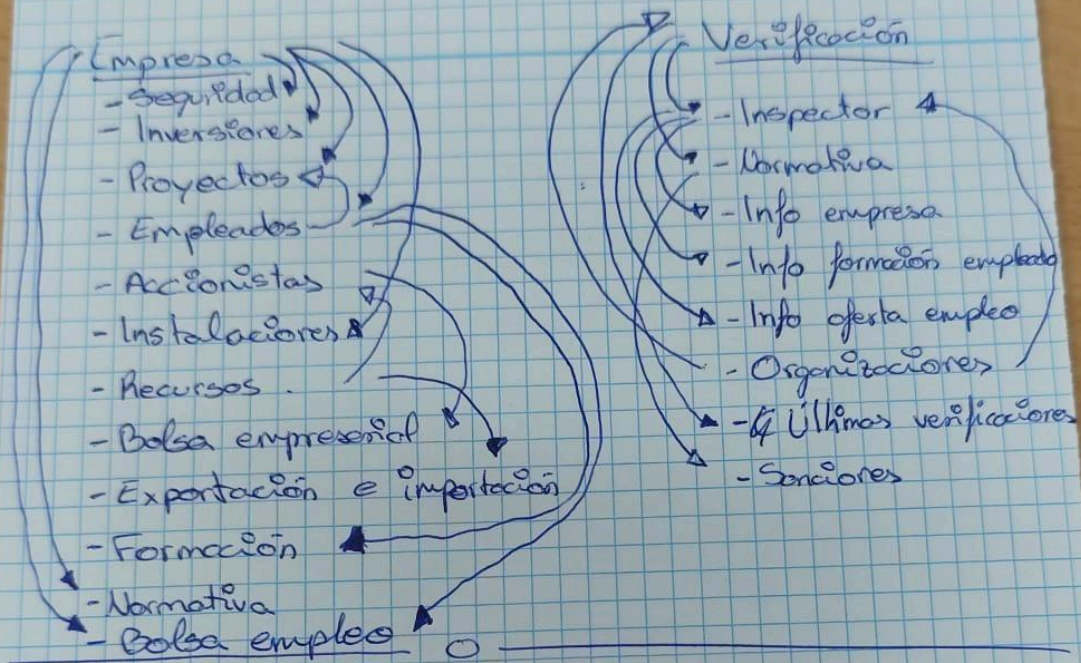 Empresa
- Seguridad
- Inversiones
- Proyectos
- Empleados
- Accionistas
- Instalaciones
- Recursos
- Bolsa empresarial
- Exportación e importación
- Formación
- Normativa
- Bolsa empleo
Verificación
- Inspector
- Normativa
- Info empresa
- Info formación empleado
- Info oferta empleo
- Organizaciones
- Últimas verificaciones
- Sanciones